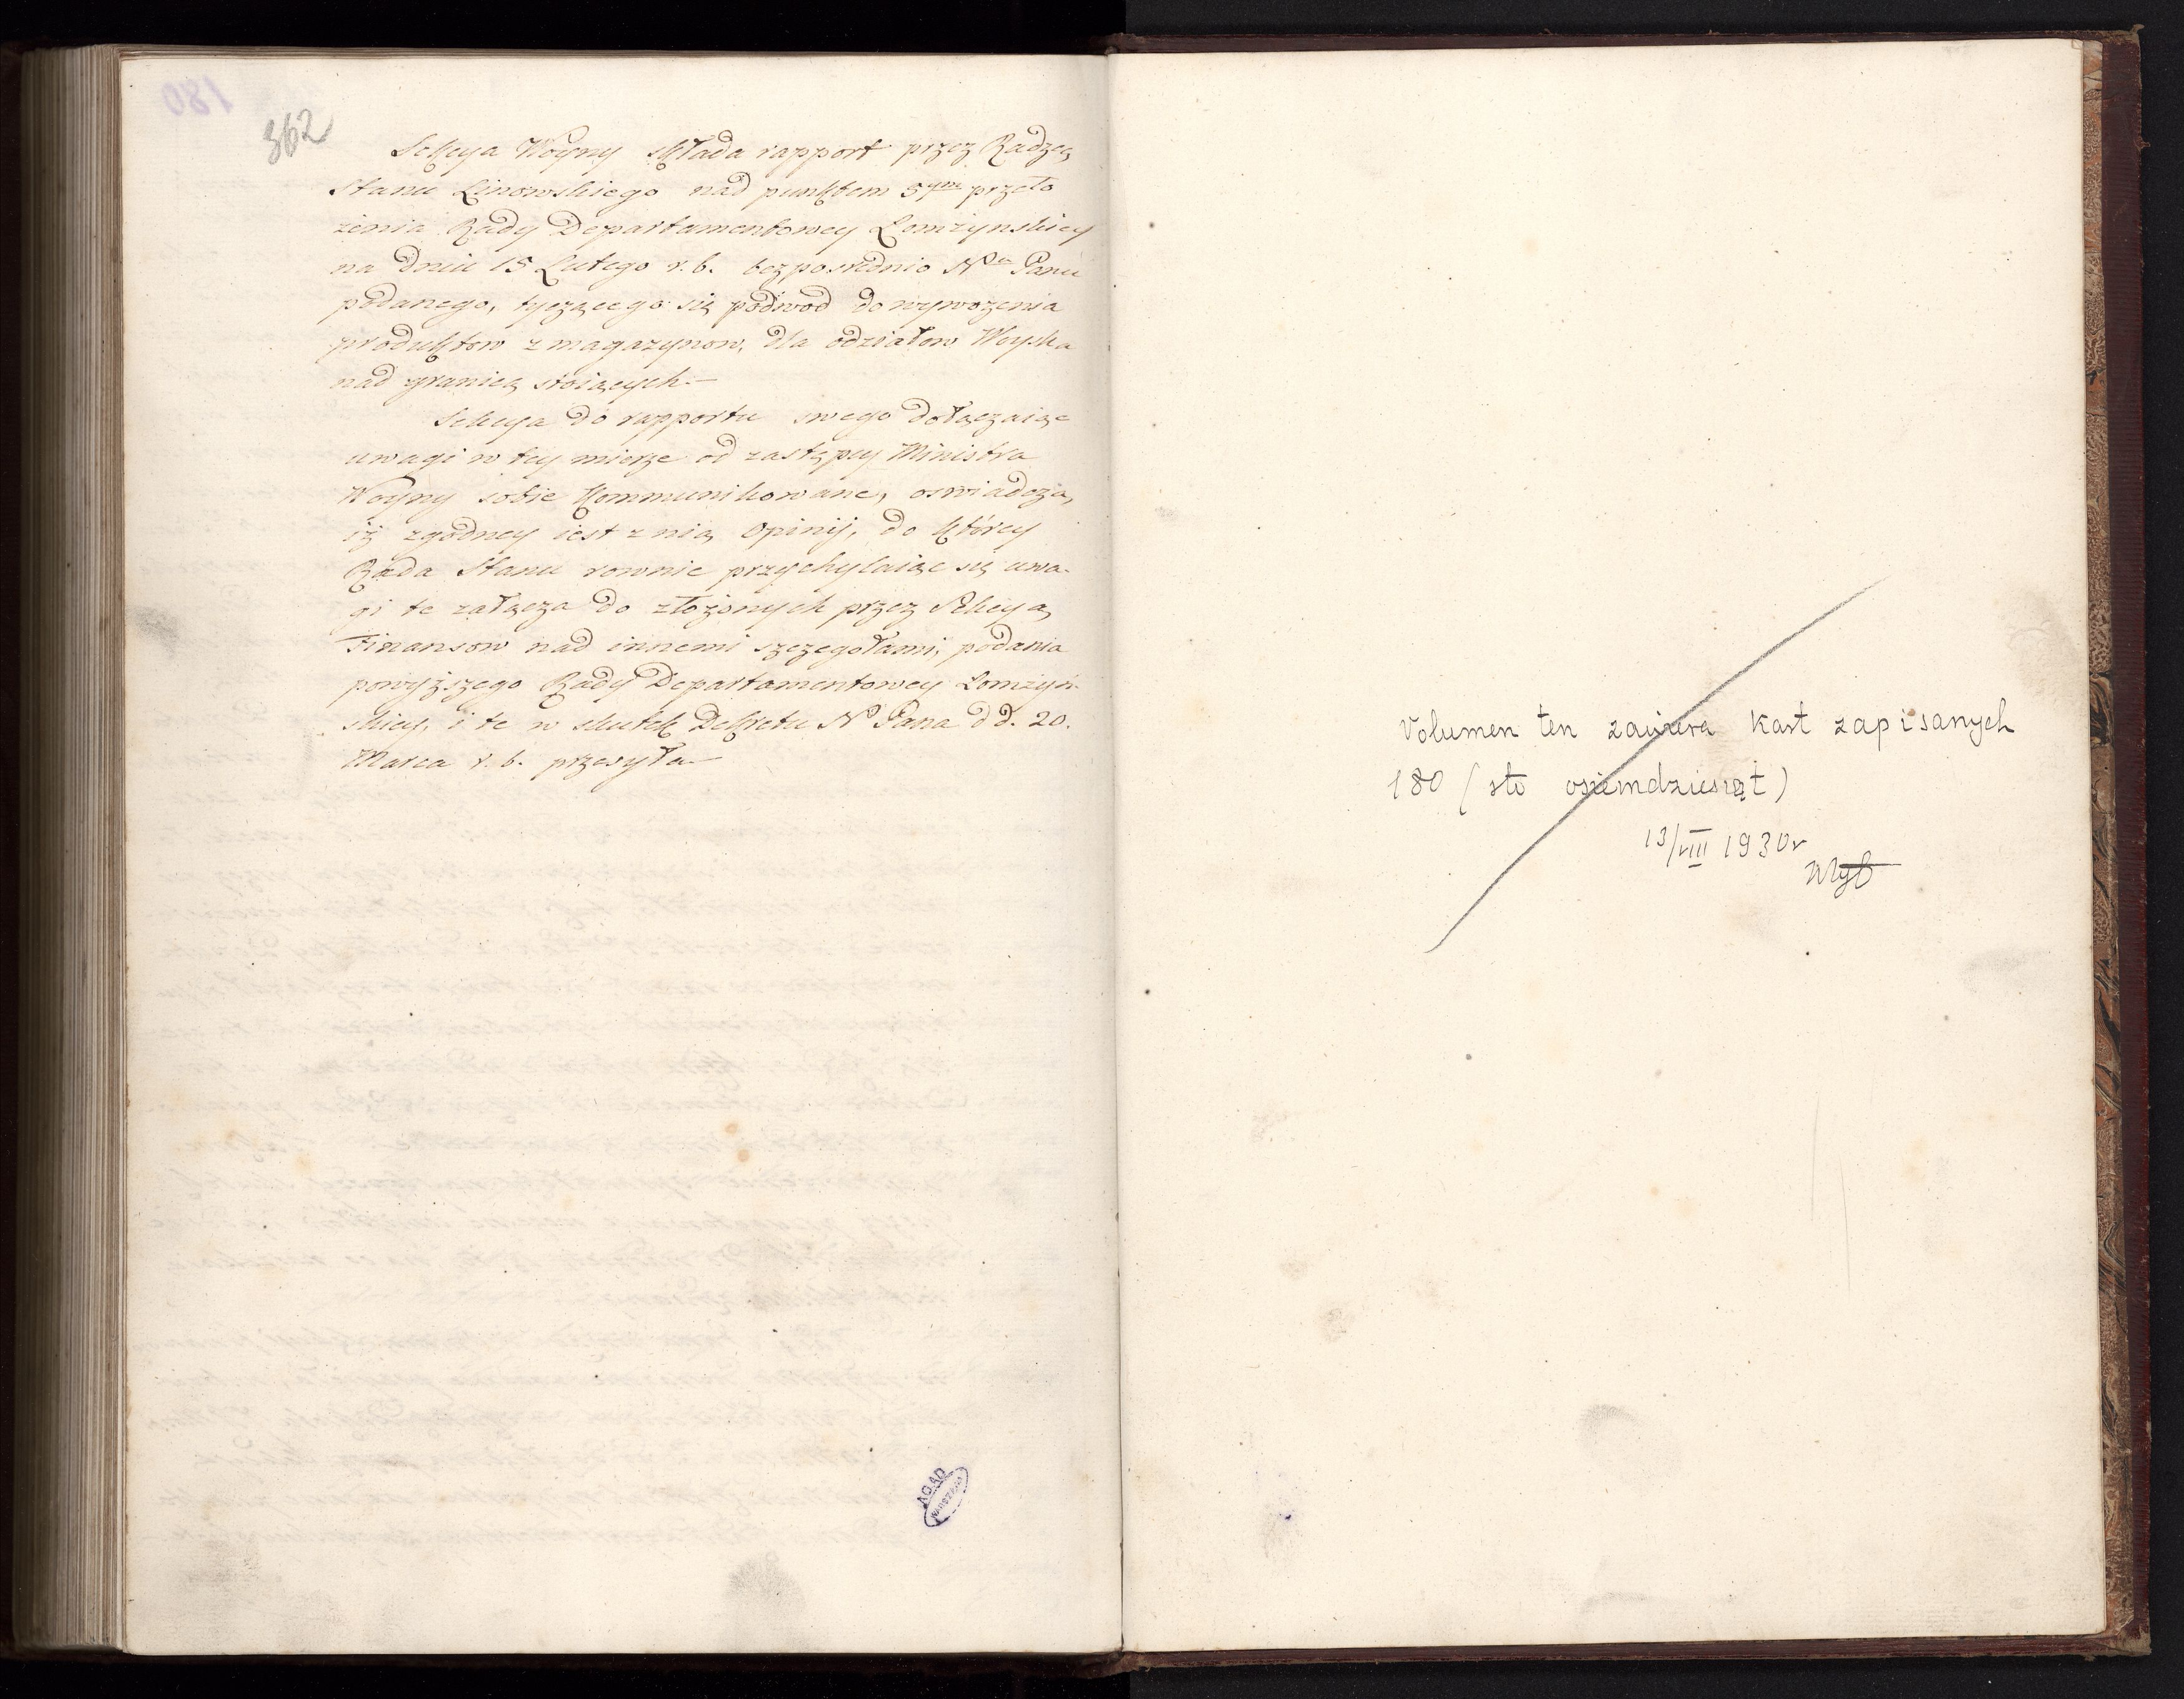 362
Sekcya Woyny składa rapport przez Radzcę
Stanu Linowskiego nad punktem 5ym przeło
żenia Rady Departamentowey Łomżynskiey
na dniu 15 Lutego r. b. bezposrednio Nu Panu
podanego, tyczącego się podwod do wywożenia
produktow z magazynow, dla odziałow Woyska
nad granicą stoiących.—
Sekcya do rapportu swego dołączaiąc
uwagi w tey mierze od zastępcy Ministra
Woyny sobie kommunikowane, oswiadcza,
iż zgodney iest z nią Opinij, do którey
Rada Stanu rownie przychylaiąc się uwa-
gi te załącza do złożonych przez Sekcyą
Finansow nad innemi szczegołami, podania
powyższego Rady Departamentowey Łomżyń-
skiey, i te w skutek Dekretu N Pana d d. 20.
Marca r. b. przesyła—
AGAD
Volumen ten zawiera kart zapisanych
180 (sto osiemdziesiąt)
13/VIII 1930 r